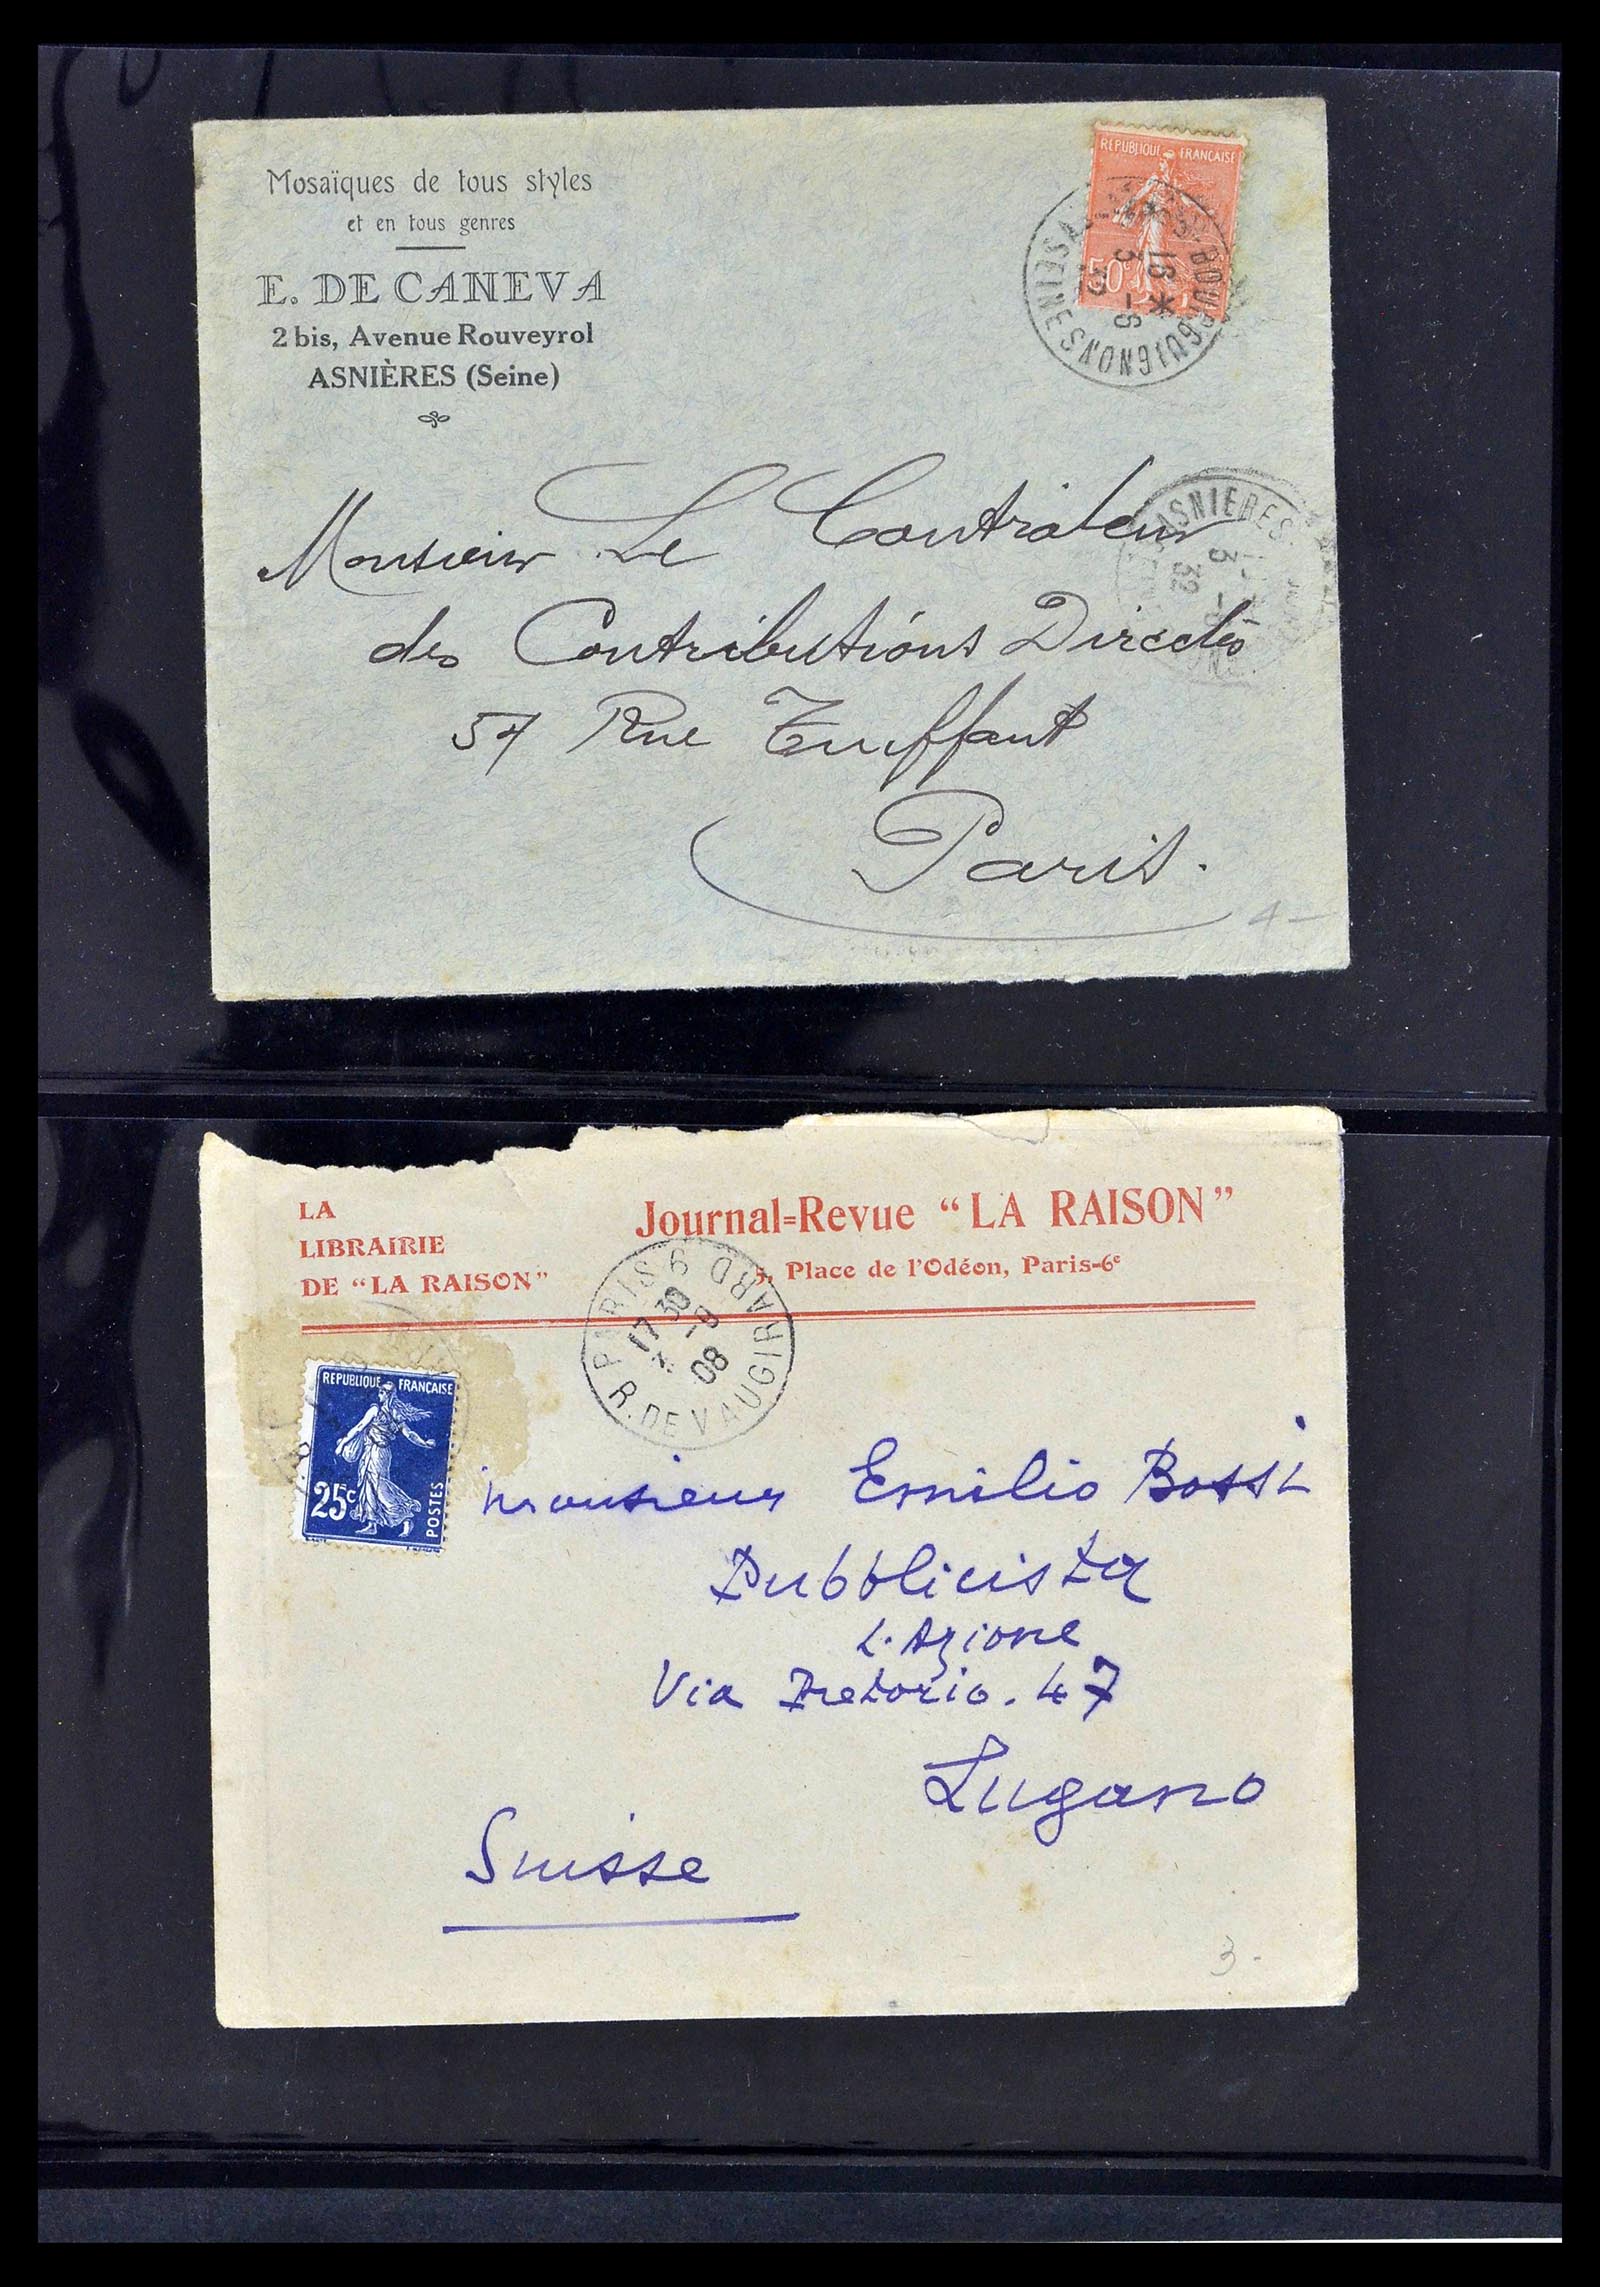 Mosaïques de tous styles
et en tous genres
E. DE CANEVA
2 bis, Avenue Rouveyrol
ASNIÈRES (Seine)
REPUBLIQUE FRANÇAISE
50c
BOURGUIGNONS
SEINE
16 *
3 - 6
32
ASNIERES
3 -
32
Monsieur Le Controleur
des Contributions Directes
57 Rue Truffaut
Paris.
4 -
LA
LIBRAIRIE
DE "LA RAISON"
Journal=Revue "LA RAISON"
5, Place de l'Odéon, Paris-6e
PARIS 9
R. DE VAUGIRARD
17 30
* - 9
08
REPUBLIQUE FRANÇAISE
25c
POSTES
Monsieur Emilio Bossi
Pubblicista
L'Azione
Via Pretorio. 47
Lugano
Suisse
3 -